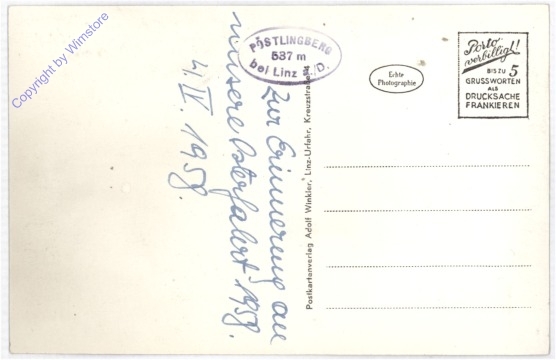 Copyright by Wimstore
PÖSTLINGBERG
537 m
bei Linz a./D.
Zur Erinnerung an
unsere Osterfahrt 1958.
4. IV. 1958.
Echte
Photographie
Porto
verbilligt!
BIS ZU 5
GRUSSWORTEN
ALS
DRUCKSACHE
FRANKIEREN
Postkartenverlag Adolf Winkler, Linz-Urfahr, Kreuzstraße 4